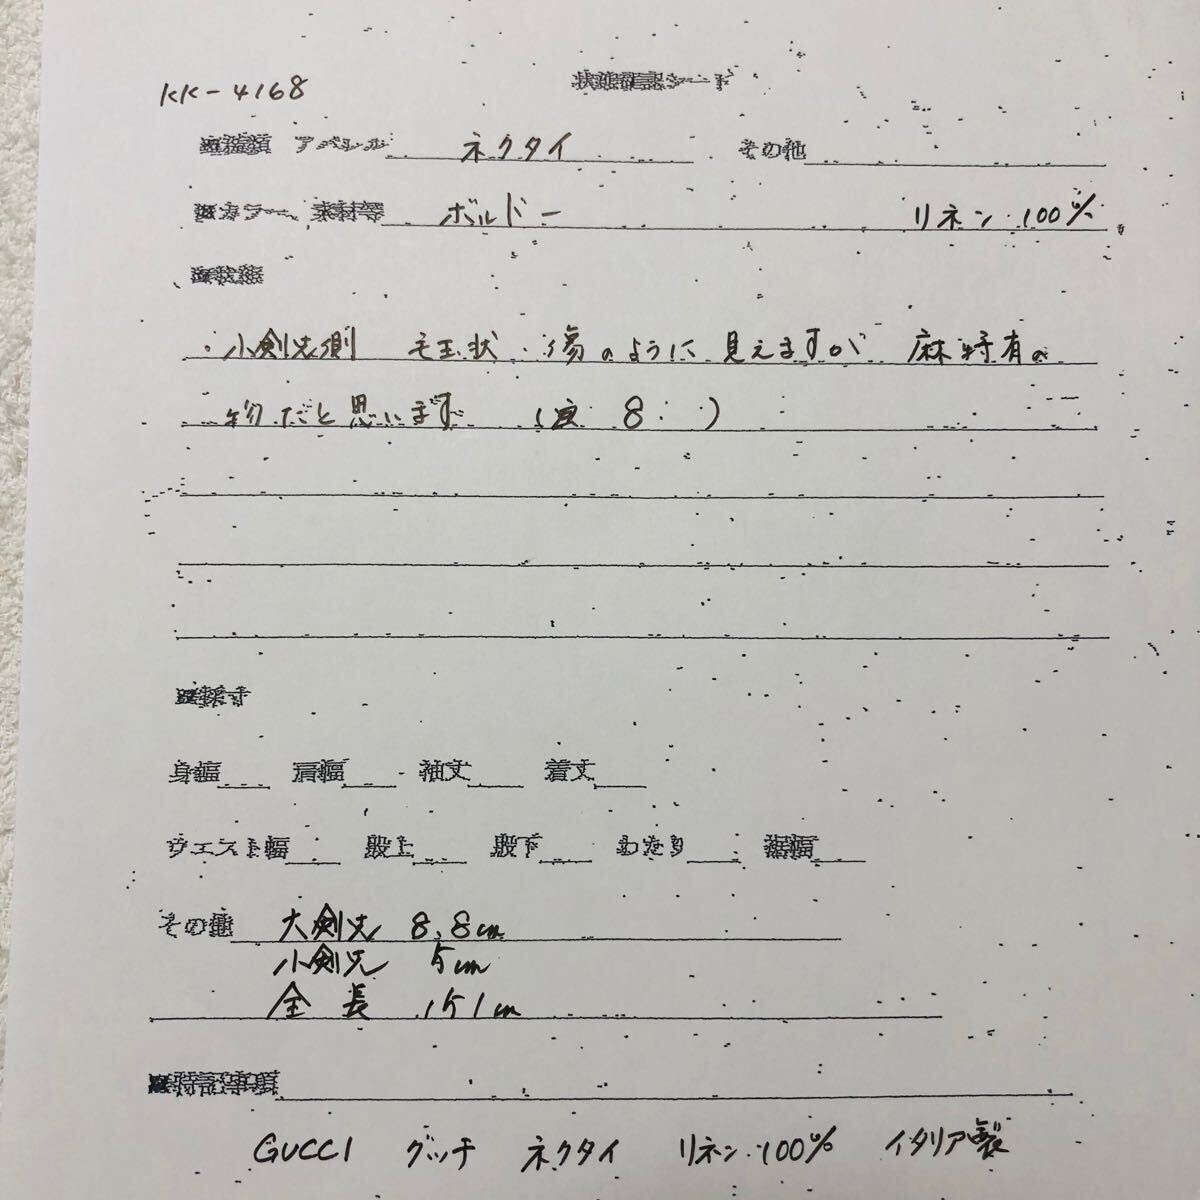 KK-4168
状態確認シート
■種類 アパレル ネクタイ その他
■カラー、素材等 ボルドー リネン 100%
■状態
・小剣先側 毛玉状・傷のように見えますが 麻特有の
物だと思います ( 8 )
■採寸
身幅 肩幅 袖丈 着丈
ウエスト幅 股上 股下 わたり 裾幅
その他 大剣先 8.8cm
小剣先 5cm
全長 151cm
■特記事項
GUCCI グッチ ネクタイ リネン100% イタリア製